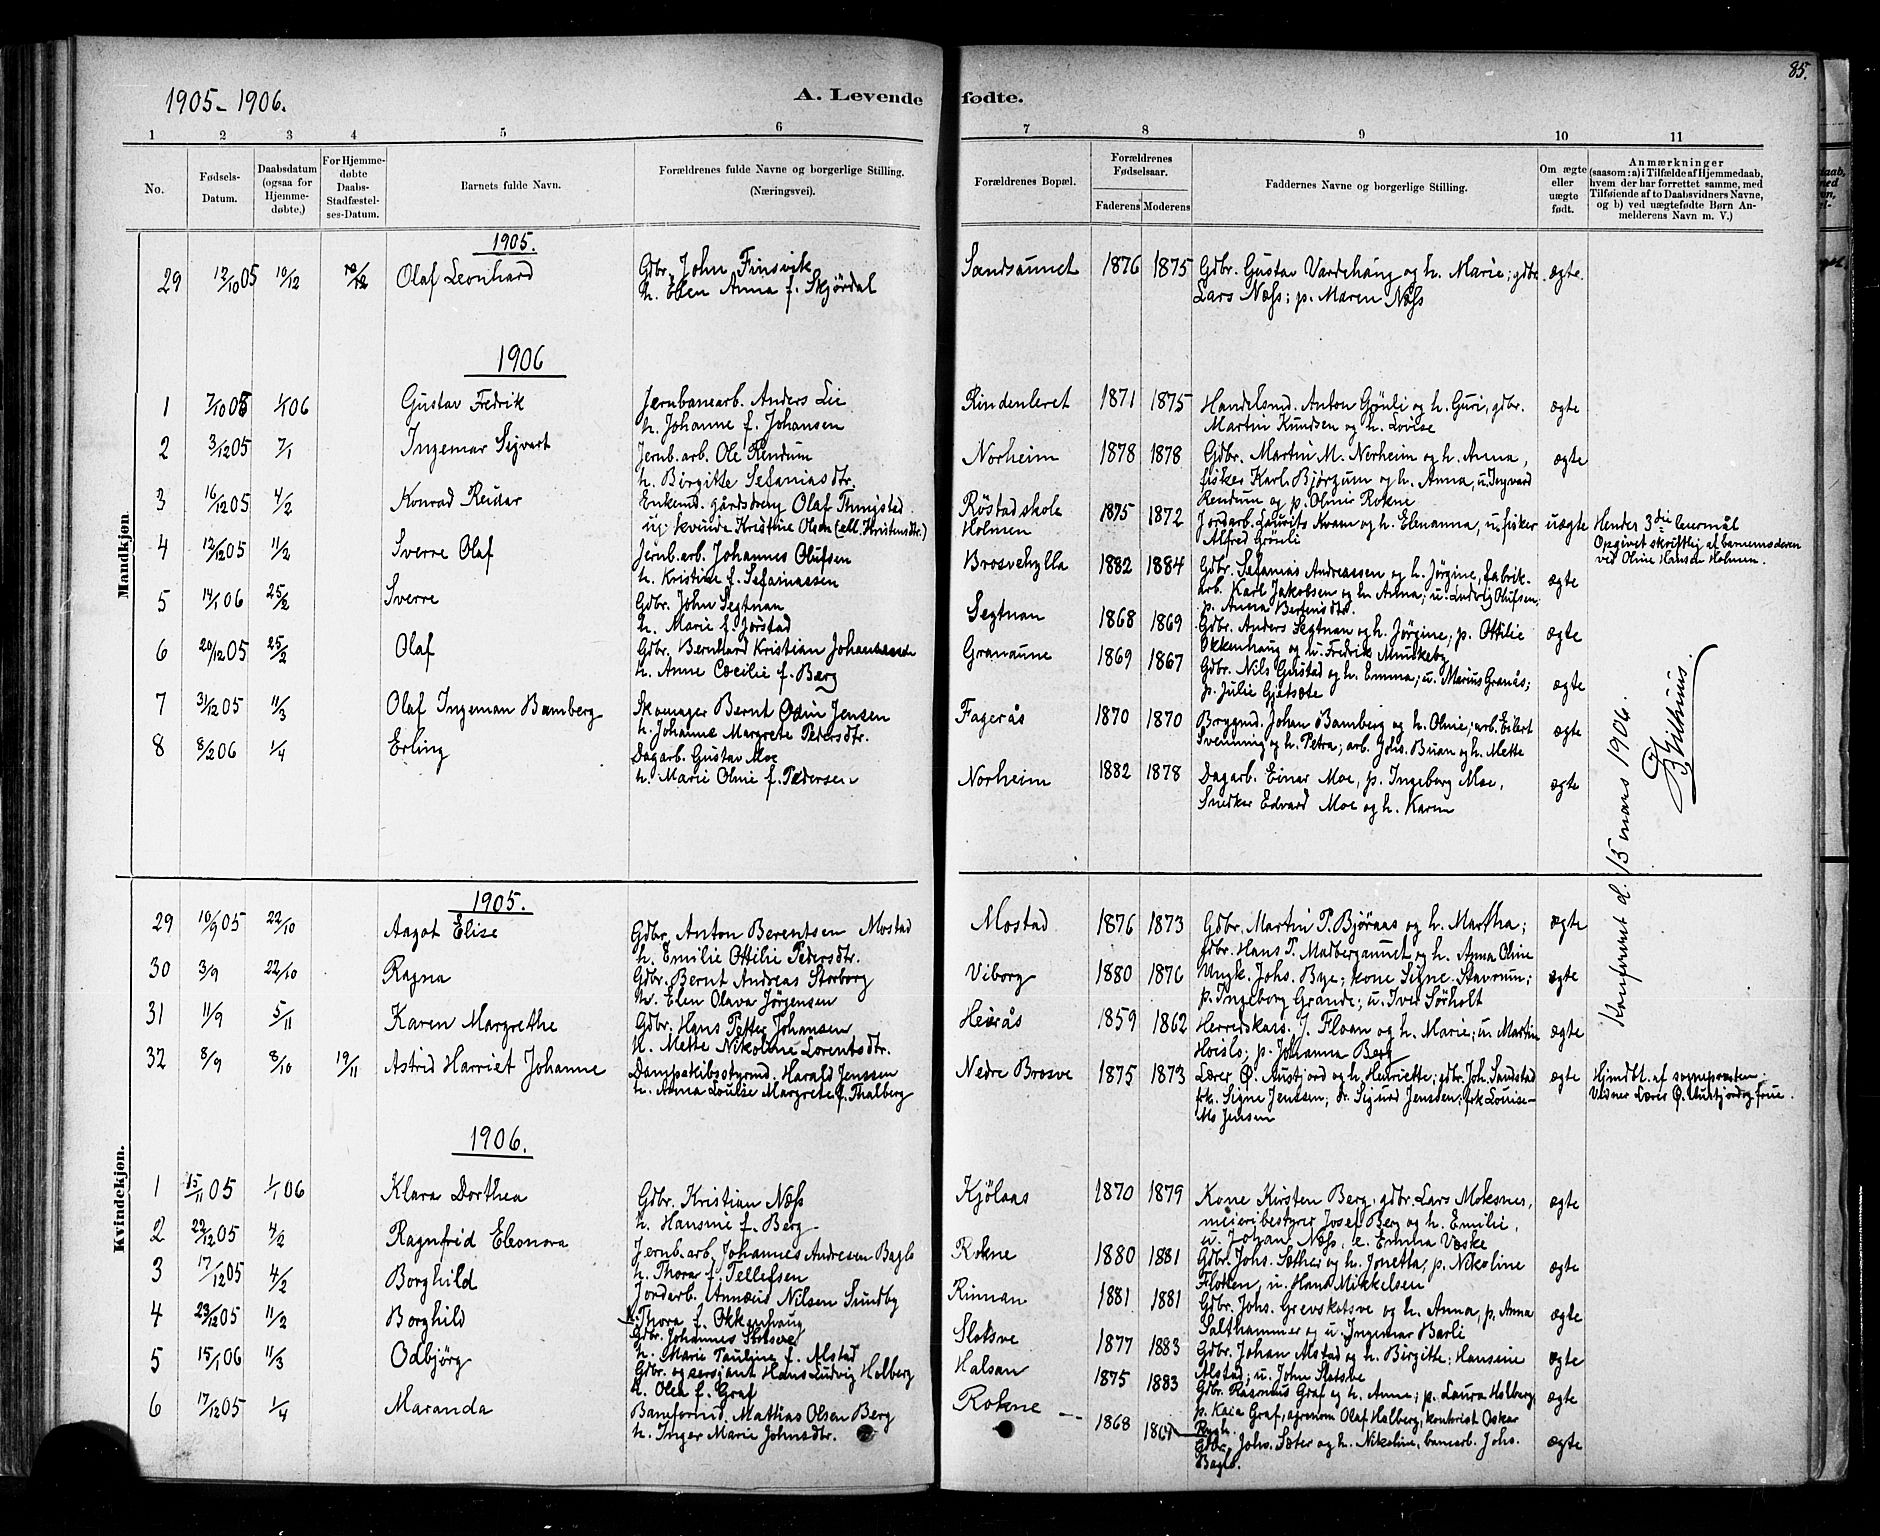 85.
1905-1906.
A. Levende fødte.
1 2 3 4 5 6 7 8 9 10 11
No.
Fødsels-Datum.
Daabsdatum (ogsaa for Hjemme-døbte,)
For Hjemme-døbte Daabs-Stadfæstel-ses-Datum.
Barnets fulde Navn.
Forældrenes fulde Navne og borgerlige Stilling. (Næringsvei).
Forældrenes Bopæl.
Forældrenes Fødselsaar.
Faderens Moderens
Faddernes Navne og borgerlige Stilling.
Om ægte eller uægte født.
Anmærkninger
(saasom: a) i Tilfælde af Hjemmedaab, hvem der har forrettet samme, med Tilføiende af to Daabsvidners Navne, og b) ved uægtefødte Børn An-melderens Navn m. V.)
Mandkjøn.
1905.
29 12/10 05 10/12 10/12 Olaf Leonhard
Gdbr. John Finsvik
h. Elen Anna f. Skjørdal
Sandsaunet 1876 1875
Gdbr. Gustav Vardehaug og h. Marie; gdbr.
Lars Næss; p. Maren Næss
ægte.
1906
1 7/10 05 1/1 06 Gustav Fredrik
Jernbanearb. Anders Lie
h. Johanne f. Johansen
Rindenleret 1871 1875
Handelsmd. Anton Grönli og h. Guri, gdbr.
Martin Knudsen og h. Lovise
ægte
2 3/12 05 7/1 Ingemar Sigvart
Jernb.arb. Ole Rendum
h. Birgitte Sefaniasdtr.
Norheim 1878 1878
Gdbr. Martin M. Norheim og h. Anna,
fisker Karl Bjørgum og h. Anna, u. Ingvard
Rendum og p. Oline Rokne
ægte
3 16/12 05 4/2 Konrad Reidar
Enkemd. gårdsdreng Olaf Tingstad
ug. kvinde Kristine Olsen (ell. Kristensdtr.)
Röstad skole
Holmen
1875 1872
Jordarb. Laurits Kvam og h. Elenanna, u. fisker
Alfred Grönli
uægte
Hendes 3die leiermål
Opgivet skriftlig af barnemoderen
ved Oline Hansdr Holmen.
4 12/12 05 11/2 Sverre Olaf
Jernb.arb. Johannes Olufsen
h. Kristine f. Sefaniassen
Brosvehylla 1882 1884
Gdbr. Sefanias Andreassen og h. Jørgine, fabrik-
arb. Karl Jakobsen og h. Anna; u. Ludvig Olufsen;
p. Anna Berentsdtr.
ægte
5 14/1 06 25/2 Sverre
Gdbr. John Segtnan
h. Marie f. Jørstad
Segtnan 1868 1869
Gdbr. Anders Segtnan og h. Jørgine; p. Ottilie
Okkenhaug og u. Fredrik Munkeby
ægte
6 20/12 05 25/2 Olaf
Gdbr. Bernhard Kristian Johannesen
h. Anne Cæcilie f. Berg
Granaune 1869 1867
Gdbr. Nils Gustad og h. Emma; u. Marius Granås;
p. Julie Gjetsæte
ægte
7 31/12 05 11/3 Olaf Ingeman Bamberg
Skomager Bernt Odin Jensen
h. Johanne Margrete Pedersdtr.
Fagerås 1870 1870
Brygmd. Johan Bamberg og h. Oline; arb. Eilert
Svenning og h. Petra; arb. Johs. Buan og h. Mette
ægte
8 8/2 06 1/4 Erling
Dagarb. Gustav Moe
h. Marie Oline f. Pedersen
Norheim 1882 1878
Dagarb. Einar Moe, p. Ingeborg Moe,
Snedker Edvard Moe og h. Karen
ægte
Konfereret d. 15 mars 1906.
Kvindekjøn.
1905.
29 10/9 05 22/10 Aagot Elise
Gdbr. Anton Berentsen Mostad
h. Emilie Ottilie Pedersdtr.
Mostad 1876 1873
Gdbr. Martin P. Björaas og h. Martha;
gdbr. Hans P. Madbergaunet og h. Anna Oline
ægte
30 3/9 22/10 Ragna
Gdbr. Bernt Andreas Storborg
h. Elen Olava Jørgensen
Viborg 1880 1876
Ungk. Johs. Bye; kone Signe Stavrum;
p. Ingeborg Grande; u. Iver Sørholt
ægte
31 11/9 5/11 Karen Margrethe
Gdbr. Hans Petter Johansen
h. Mette Nikoline Lorentsdtr.
Heirås 1859 1862
Herredskass. J. Floan og h. Marie; u. Martin
Hoislo; p. Johanna Berg
ægte
32 8/9 8/10 19/11 Astrid Harriet Johanne
Dampskibsstyrmd. Harald Jenssen
h. Anna Louise Margrete f. Thalberg
Nedre Brosve 1875 1873
Lærer Ø. Austfjord og h. Henriette; gdbr. Joh. Sandstad
frk. Signe Jenssen; dr. Sigurd Jenssen; frk Louise-
Mo Jensen
ægte
Hjmdbt. af sognepresten.
Vidner Lærer Ø. Austfjord og frue.
1906.
1 15/11 05 1/1 06 Klara Dorthea
Gdbr. Kristian Næss
h. Hansine f. Berg
Kjölaas 1870 1879
Kone Kirsten Berg, gdbr. Lars Moksnes,
meieribestyrer Josef Berg og h. Emilie,
u. Johan Næss, e. Emma Væske
ægte
2 22/12 05 4/2 Ragnfrid Eleonora
Jernb.arb. Johannes Andresen Baglo
h. Thora f. Tellefsen
Rokne 1880 1881
Gdbr. Johs. Sæther og h. Jonetta; p. Nikoline
Floten, u. Hans Mikkelsen
ægte
3 17/12 05 4/2 Borghild
Jordarb. Annæus Nilsen Sundby
h. Thora f. Okkenhaug
Rinnan 1881 1881
Gdbr. Johs. Grevskotsve og h. Anna, p. Anna
Salthammer og u. Ingemar Barli
ægte
4 23/12 05 11/2 Borghild
Gdbr. Johannes Slotsve
h. Marie Pauline f. Alstad
Slotsve 1877 1883
Gdbr. Johan Alstad og h. Birgitte; Hansine
Alstad; u. John Slotsve
ægte
5 15/1 06 11/3 Odbjørg
Gdbr. og sersjant Hans Ludvig Holberg
h. Olea f. Graf
Halsan 1875 1883
Gdbr. Rasmus Graf og h. Anne; p. Laura Holberg,
p. Kaia Graf, agronom Olaf Holberg, kontorist Oskar
Rygh.
ægte
6 17/12 05 1/4 Maranda
Baneformd. Mathias Olsen Berg
h. Inger Marie Johnsdtr.
Rokne 1868 1867
Gdbr. Johs. Sæter og h. Nikoline, banearb. Johs.
Baglo.
ægte